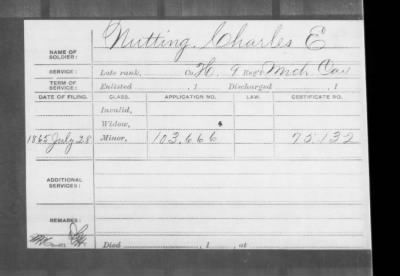 NAME OF SOLDIER: Nutting, Charles E
SERVICE: Late rank, Co. H, 9 Reg't Mich. Cav
TERM OF SERVICE: Enlisted , 1 Discharged , 1
DATE OF FILING. CLASS. APPLICATION NO. LAW. CERTIFICATE NO.
Invalid,
Widow,
1865 July 28 Minor, 103,666 75,132
ADDITIONAL SERVICES:
REMARKS:
Died , 1 , at